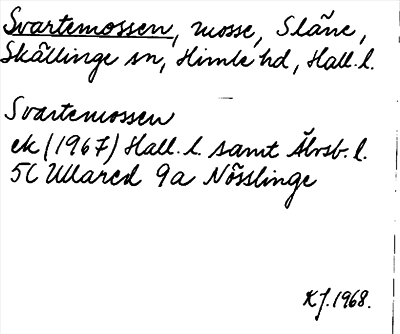 Svartemossen, mosse, Släne,
Skällinge sn, Himle hd, Hall. l.
Svartemossen
ek (1967) Hall. l. samt Älvsb. l.
5C Ullared 9a Nösslinge
KJ. 1968.